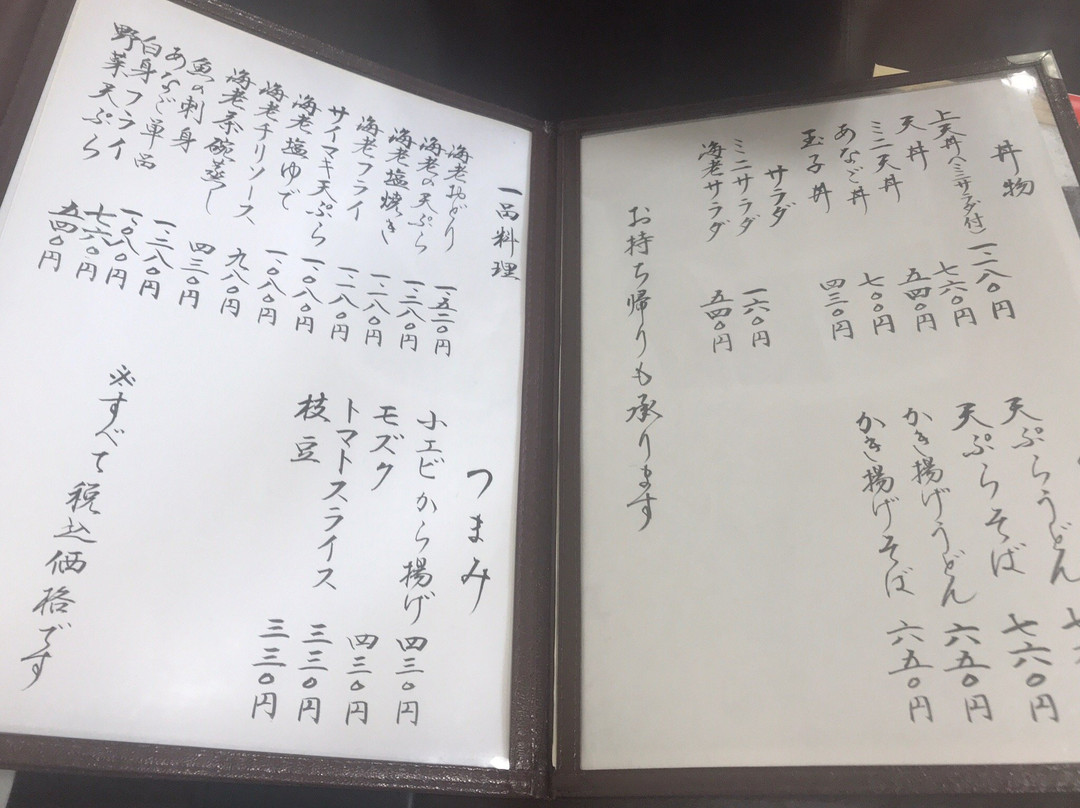 丼物
上天丼(ミニサラダ付) 一、二八〇円
天丼 七六〇円
ミニ天丼 五四〇円
あなご丼 七〇〇円
玉子丼 四三〇円
サラダ
ミニサラダ 一六〇円
海老サラダ 五四〇円
お持ち帰りも承ります
天ぷらうどん
天ぷらそば 七六〇円
かき揚げうどん 六五〇円
かき揚げそば 六五〇円
一品料理
海老おどり 一、五二〇円
海老の天ぷら 一、三八〇円
海老塩焼き 一、二八〇円
海老フライ 一、二八〇円
サイマキ天ぷら 一、〇八〇円
海老塩ゆで 一、〇八〇円
海老チリソース 九八〇円
海老茶碗蒸し 四三〇円
魚の刺身 一、二八〇円
あなご単品 一、〇八〇円
白身フライ 七六〇円
野菜天ぷら 五四〇円
つまみ
小エビから揚げ 四三〇円
モズク 四三〇円
トマトスライス 三三〇円
枝豆 三三〇円
※すべて税込価格です